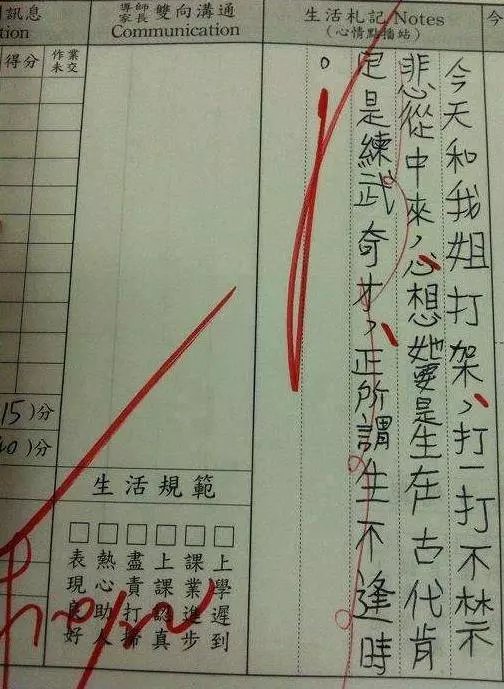 今
生活札記 Notes
(心情點播站)
今天和我姐打架，打一打不禁
悲從中來，心想她要是生在古代肯
定是練武奇才，正所謂生不逢時
。
導師家長 雙向溝通
Communication
生活規範
上學遲到
課業進步
上課認真
盡責打掃
熱心助人
表現良好
訊息
tion
得分
作業未交
15)分
)分